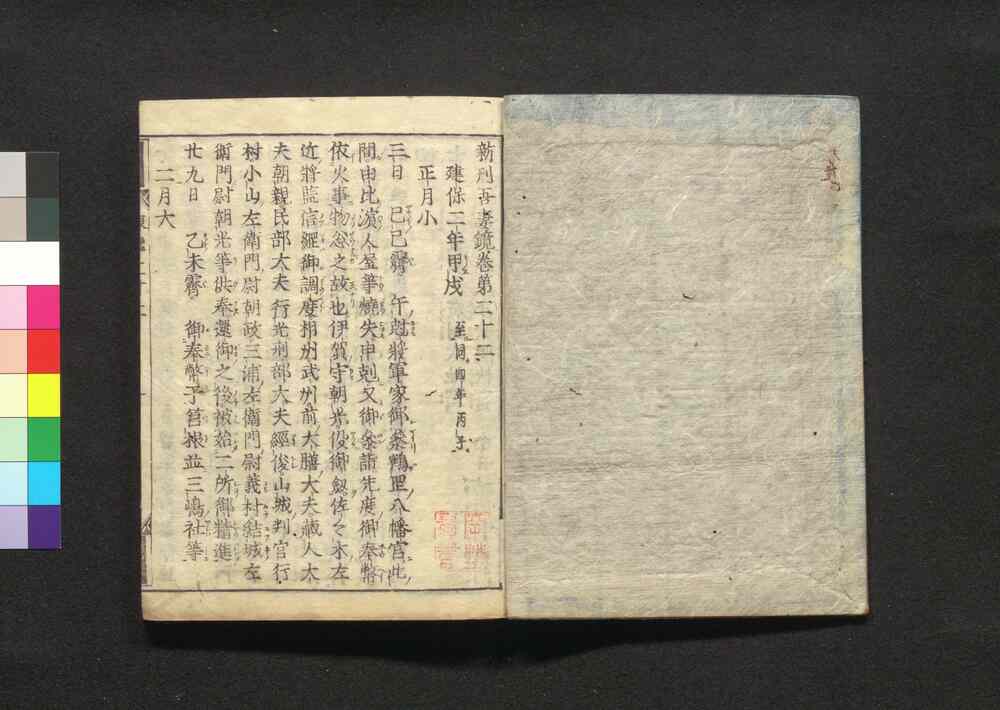 新刊吾妻鏡卷第二十二
建保二年甲戌 至同四年丙子
正月小
三日 己巳霽 午尅將軍家御參鶴岡八幡宮此
間由比濱人屋等燒失申剋又御參詣先度御奉幣
依火事物忩之故也伊賀守朝光役御劔佐々木左
近將監信綱御調度相州武州前大膳大夫藏人大
夫朝親民部大夫行光刑部大夫經俊山城判官行
村小山左衛門尉朝政三浦左衛門尉義村結城左
衛門尉朝光等供奉還御之後被始二所御精進
廿九日 乙未霽 御奉幣于筥根並三嶋社等
二月大